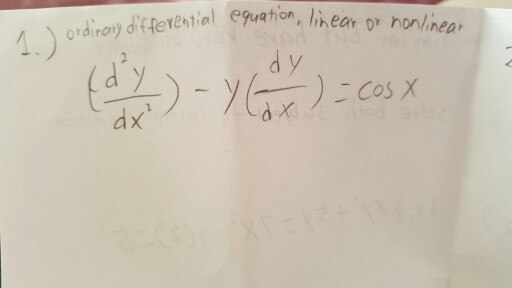 1.) ordinary differential equation, linear or nonlinear
(d²y/dx²) - y(dy/dx) = cos x